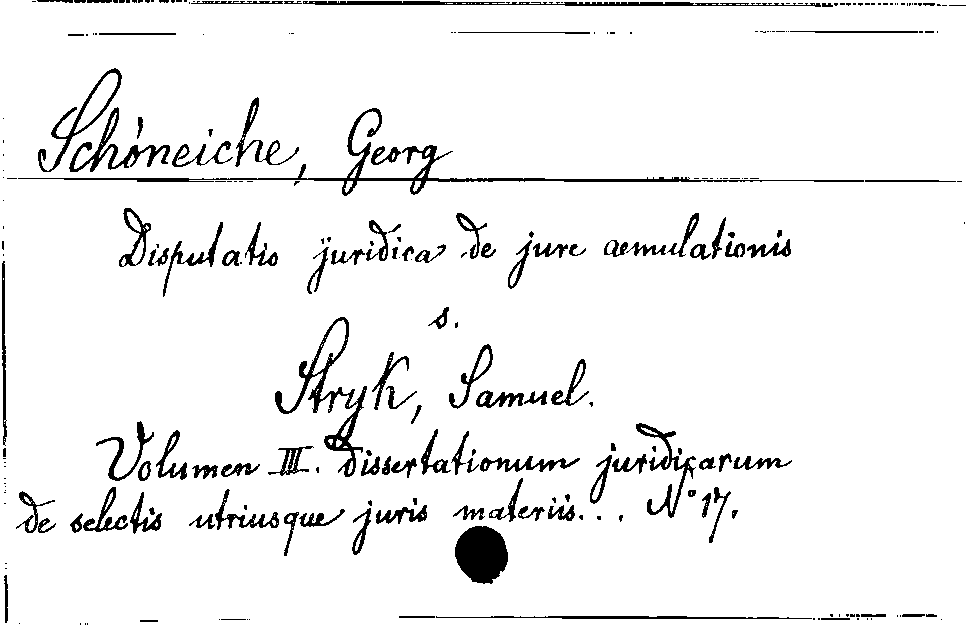 Schöneiche, Georg
Disputatio juridica de jure aemulationis
s.
Stryk, Samuel.
Volumen III. dissertationum juridicarum
de selectis utriusque juris materiis... N° 17.